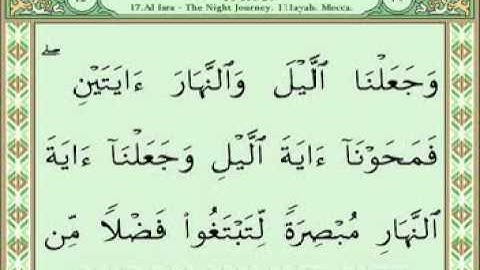 17.Al Isra - The Night Journey. 111ayah. Mecca.
وَجَعَلْنَا ٱلَّيْلَ وَٱلنَّهَارَ ءَايَتَيْنِ ۖ
فَمَحَوْنَآ ءَايَةَ ٱلَّيْلِ وَجَعَلْنَآ ءَايَةَ
ٱلنَّهَارِ مُبْصِرَةً لِّتَبْتَغُوا۟ فَضْلًا مِّن